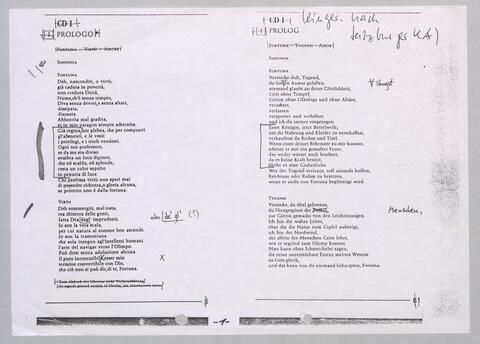 CD I
PROLOGO
FORTUNA – VIRTÙ – AMORE
SINFONIA
FORTUNA
Deh, nasconditi, o virtù,
già caduta in povertà,
non creduta Deità,
Nume, ch'è senza tempio,
Diva senza devoti, e senza altari,
dissipata,
disusata,
Abborrita mal gradita,
et in mio paragon sempre schernita.
Già regina, hor plebea, che per comprarti
gl'alimenti, e le vesti
i privilegi, e i titoli vendesti.
Ogni tuo professore,
se da me sta diviso
sembra un foco dipinto,
che nè scalda, nè splende;
resta un calor sepolto
in penuria di luce
Chi professa virtù non speri mai
di posseder richezza, o gloria alcuna,
se protetto non è dalla fortuna.
VIRTÙ
Deh sommergiti, mal nata,
rea chimera delle genti,
fatta Dea degl' imprudenti.
Io son la vera scala,
per cui natura al sommo ben ascende.
Io son la tramontana
che sola insegno agl'intelletti humani
l'arte di navigar verso l'Olimpo.
Può dirsi senza adulazione alcuna
il puro incorruttibil esser mio
termine convertibile con Dio,
che ciò non si può dir, di te, Fortuna.
(?)
x
CD I
PROLOG
nach
FORTUNA – TUGEND – AMOR
SINFONIA
FORTUNA
Verstecke dich, Tugend,
du bist in Armut gefallen,
niemand glaubt an deine Göttlichkeit,
Gott ohne Tempel,
Göttin ohne Gläubige und ohne Altäre,
verachtet,
verlassen
verspottet und verhöhnt
und ich dir immer vorgezogen.
Einst Königin, jetzt Bettelweib,
um dir Nahrung und Kleider zu verschaffen,
verkauftest du Rechte und Titel.
Wenn einer deiner Bekenner zu mir kommt,
scheint er mir ein gemaltes Feuer,
das weder wärmt noch leuchtet,
da es keine Kraft besitzt,
bleibt es eine Grabesfarbe.
Wer der Tugend vertraut, soll niemals hoffen,
Reichtum oder Ruhm zu besitzen,
wenn er nicht von Fortuna begünstigt wird.
TUGEND
Versinke, du übel geborene,
du Hirngespinst der
Menschen,
zur Göttin gemacht von den Leichtsinnigen.
Ich bin die wahre Leiter,
über die die Natur zum Gipfel aufsteigt,
ich bin der Nordwind,
der allein den Menschen Geist lehrt,
wie er segelnd zum Olymp kommt
Man kann ohne Schmeichelei sagen,
die reine unzerstörbare Essenz meines Wesens
ist Gott gleich,
und das kann von dir niemand behaupten, Fortuna.
-1-